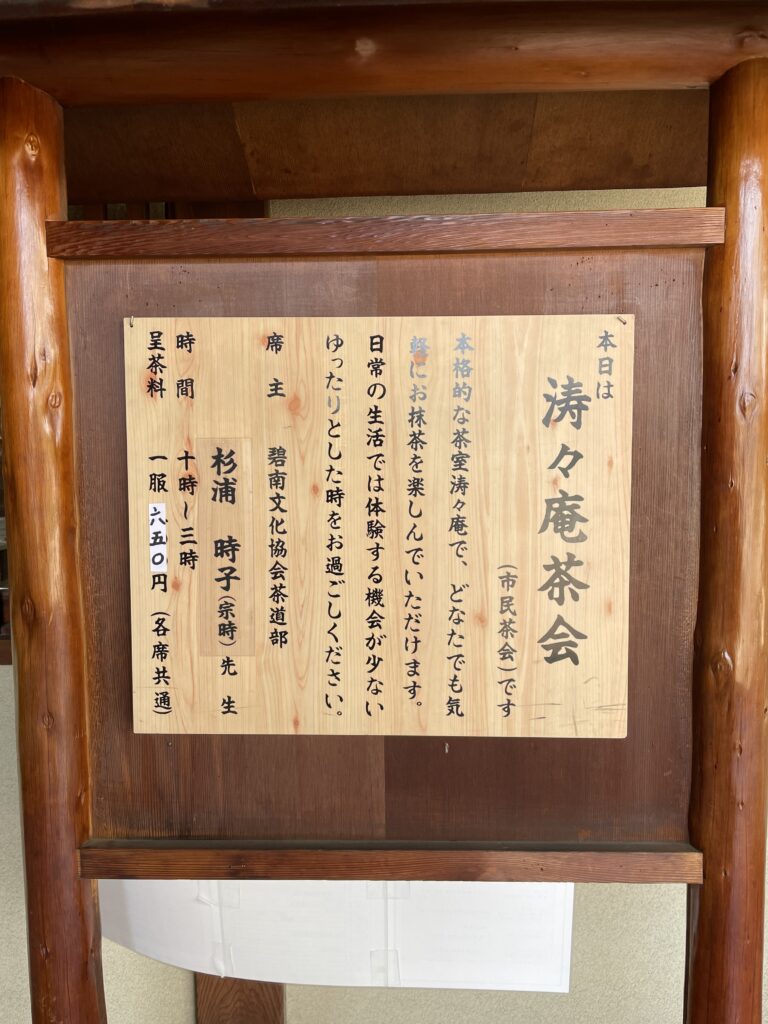 本日は
涛々庵茶会
（市民茶会）です
本格的な茶室涛々庵で、どなたでも気
軽にお抹茶を楽しんでいただけます。
日常の生活では体験する機会が少ない
ゆったりとした時をお過ごしください。
席主 碧南文化協会茶道部
杉浦 時子（宗時）先生
時間 十時〜三時
呈茶料 一服 六五〇円（各席共通）